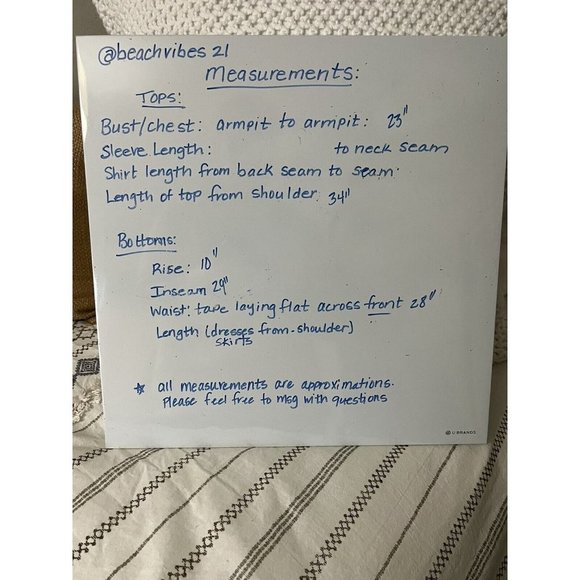 @beachvibes 21
Measurements:
TOPS:
Bust/chest: armpit to armpit: 23"
Sleeve Length: to neck seam
Shirt length from back seam to seam.
Length of top from shoulder. 34"
Bottoms:
Rise: 10"
Inseam 29"
Waist: tape laying flat across front 28"
Length (dresses from-shoulder)
skirts
☆ all measurements are approximations.
Please feel free to msg with questions
U BRANDS